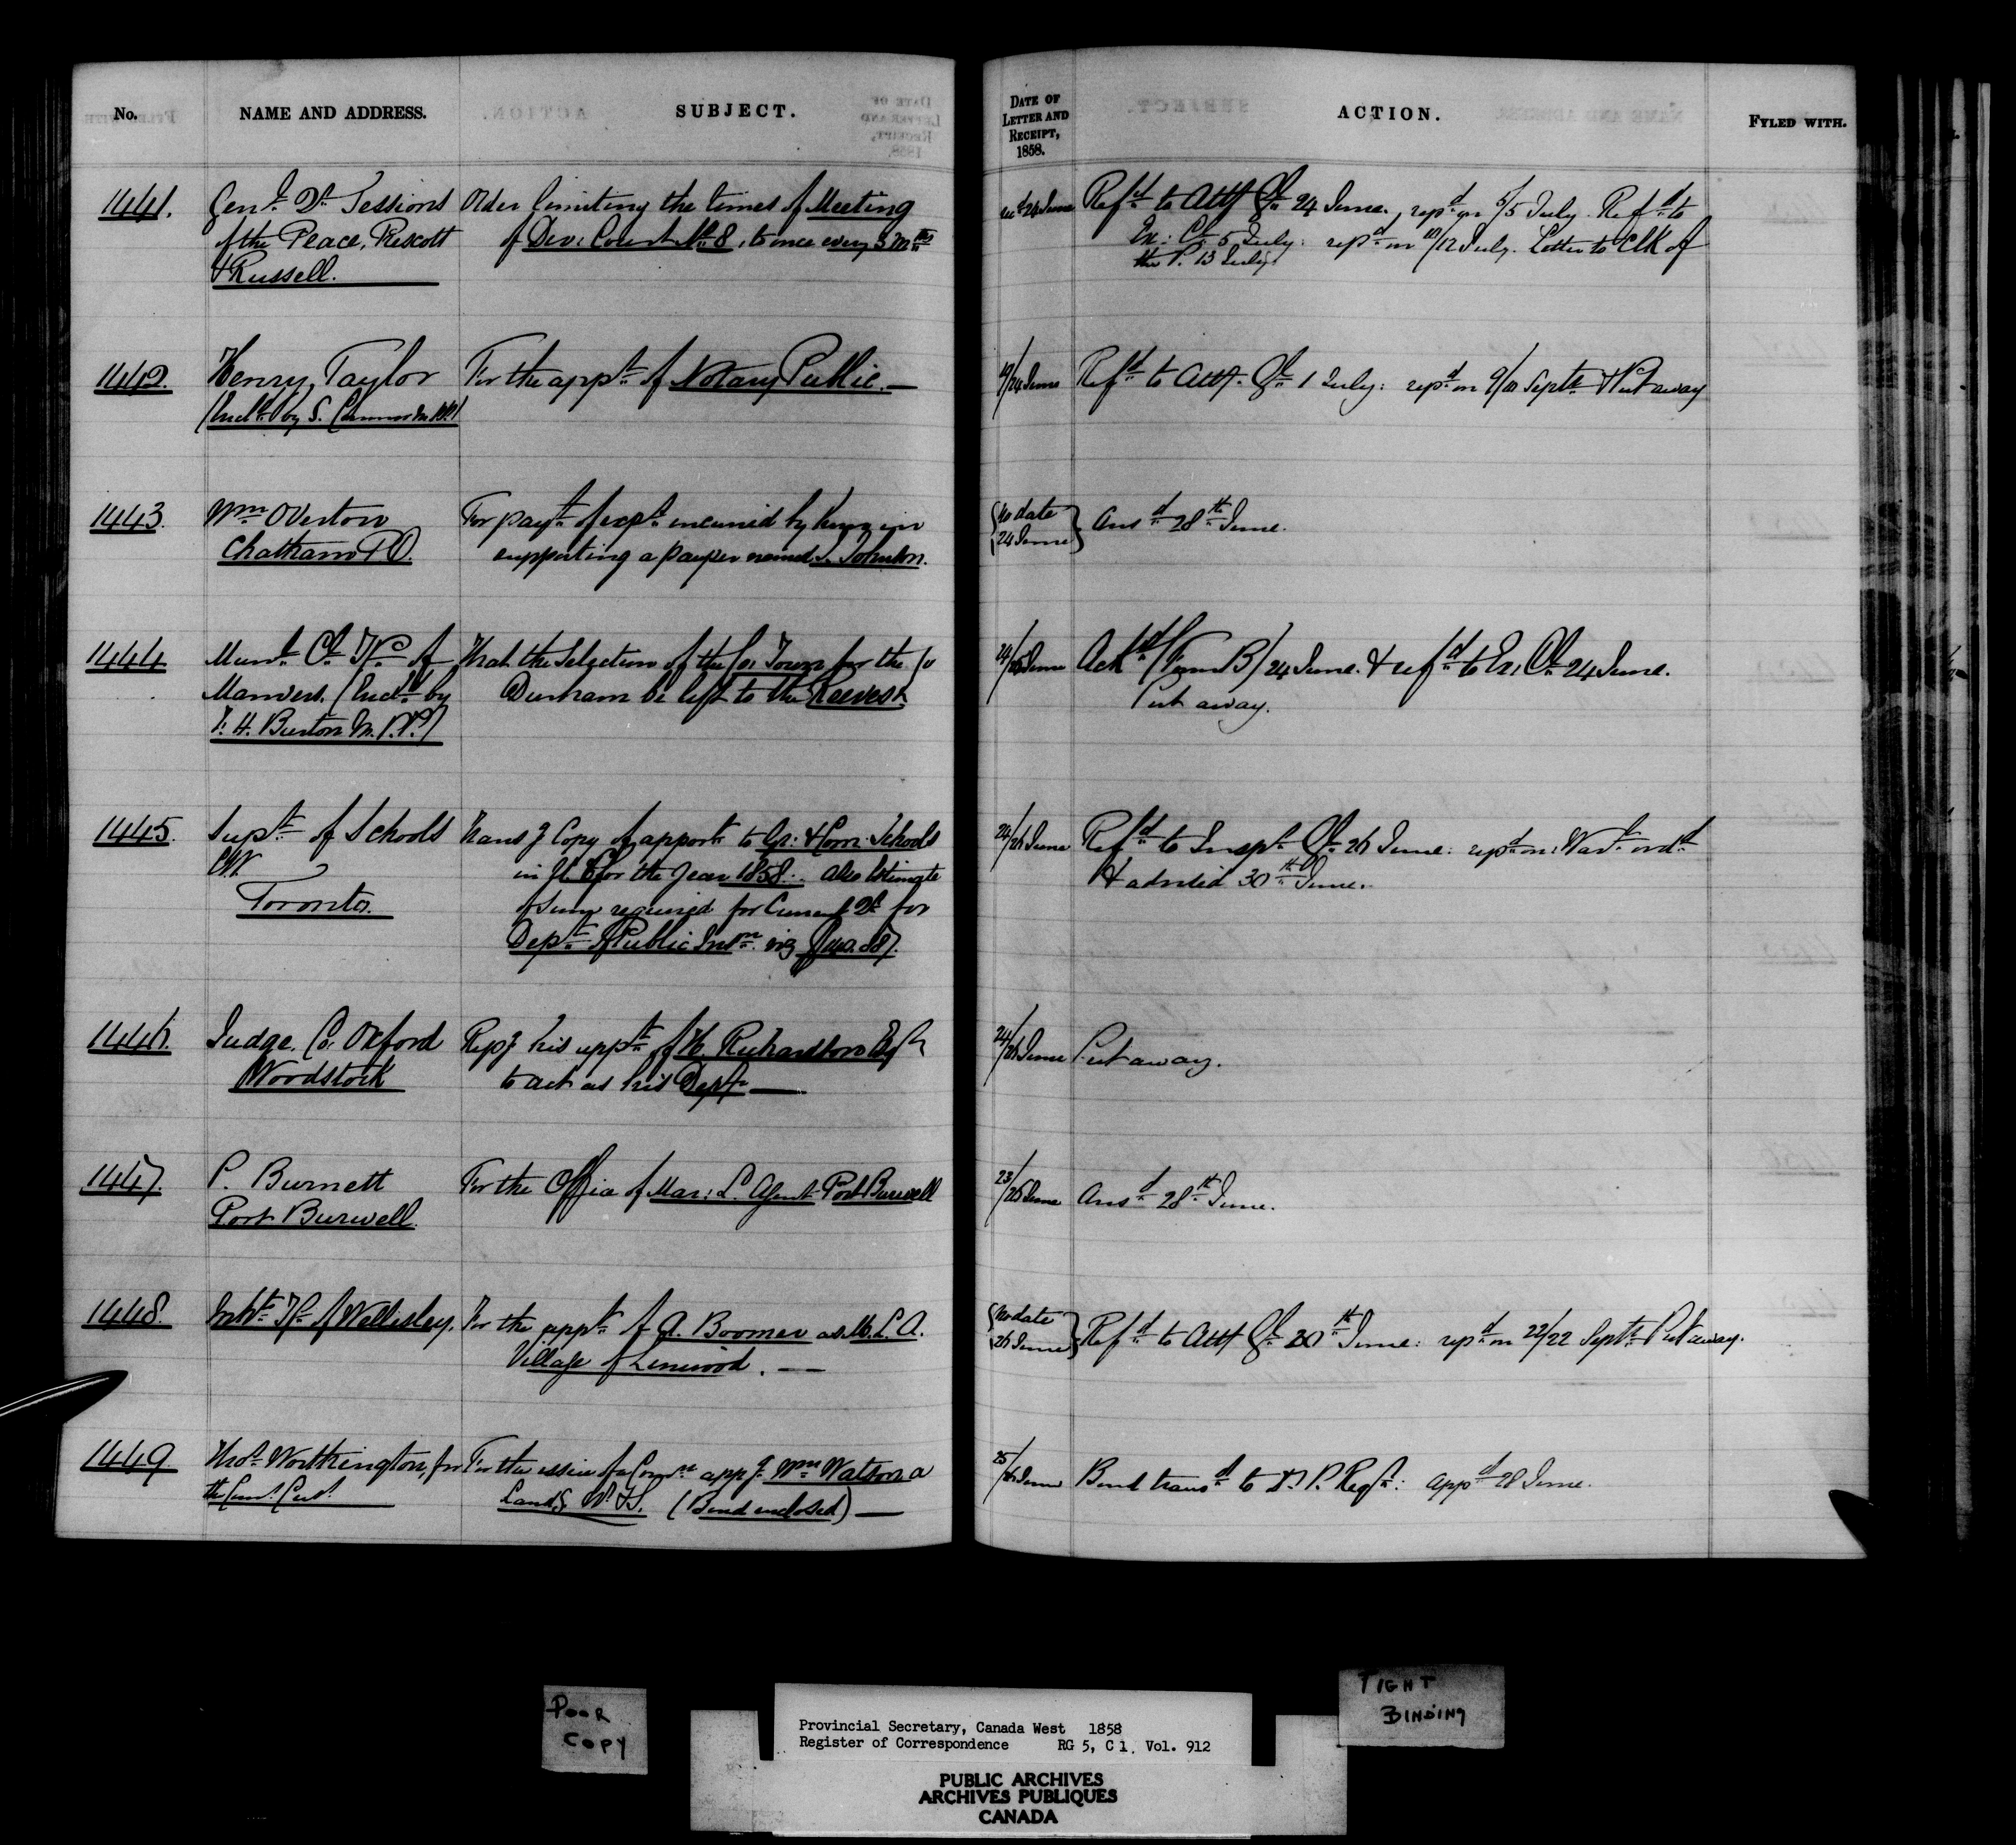 No. NAME AND ADDRESS. SUBJECT. DATE OF LETTER AND RECEIPT, 1858. ACTION. FYLED WITH.
1441. Genl. Qr. Sessions of the Peace, Prescott & Russell.
Order limiting the times of Meeting
of Div: Court No. 8, to once every 3 mths
24 June
Refd. to Atty Gl. 24 June., repd. on 5/5 July. Refd. to
Ex: Cl. 5 July: repd. on /12 July. Letter to Clk of
the P. 13 July.
1442. Henry Taylor
(Encld. by S. Connor M.P.P.)
For the appt. of Notary Public.—
19/24 June
Refd. to Atty. Gl. 1 July: repd. on 9/ Septr. & Put away
1443. Wm Overton
Chatham P.O.
For payt. of expt. incurred by him in
supporting a pauper named J. Johnston.
No date
24 June
Ansd. 28th June.
1444 Munl. Cl. Tp of
Manvers. (Encd. by
F. H. Burton M.P.P.)
That the Selection of the Co: Town for the Co
Durham be left to the Reeves.
24/25 June
Ackd. (Form B) 24 June. & refd. to Ex: Cl. 24 June.
Put away.
1445. Supt. of Schools
C.W.
Toronto.
Trans g Copy of apport. to Gr: & Com: Schools
in U.C. for the year 1858. also Estimate
of sum required for Current Qr. for
Dept. of Public Instn. viz
24/26 June
Refd. to Inspr. Gl. 26 June: repd. on: Wart. ordd.
& advised 30th June.
1446. Judge. Co. Oxford
Woodstock
Repg his appt. of H. Richardson Esqr
to act as his Depy.—
24/26 June
Put away.
1447. P. Burnett
Port Burwell.
For the Office of Mar: L. Agent Port Burwell
23/25 June
Ansd. 28th June.
1448. Inhts. Tp. of Wellesley.
For the appt. of A. Boomer as M. L. A.
Village of Linwood. —
No date
26 June
Refd. to Atty Gl. 30th June: repd. on 22/22 Septr. Put away.
1449. Thos. Worthington, for
the Comr. Cust.
For the issue of a Comn. appg. Wm Watson a
Land g W.
(Bond enclosed) —
25/ June
Bond transd. to D. P. Regr.: appd. 28 June.
POOR
COPY
Provincial Secretary, Canada West 1858
Register of Correspondence RG 5, C 1, Vol. 912
PUBLIC ARCHIVES
ARCHIVES PUBLIQUES
CANADA
TIGHT
BINDING